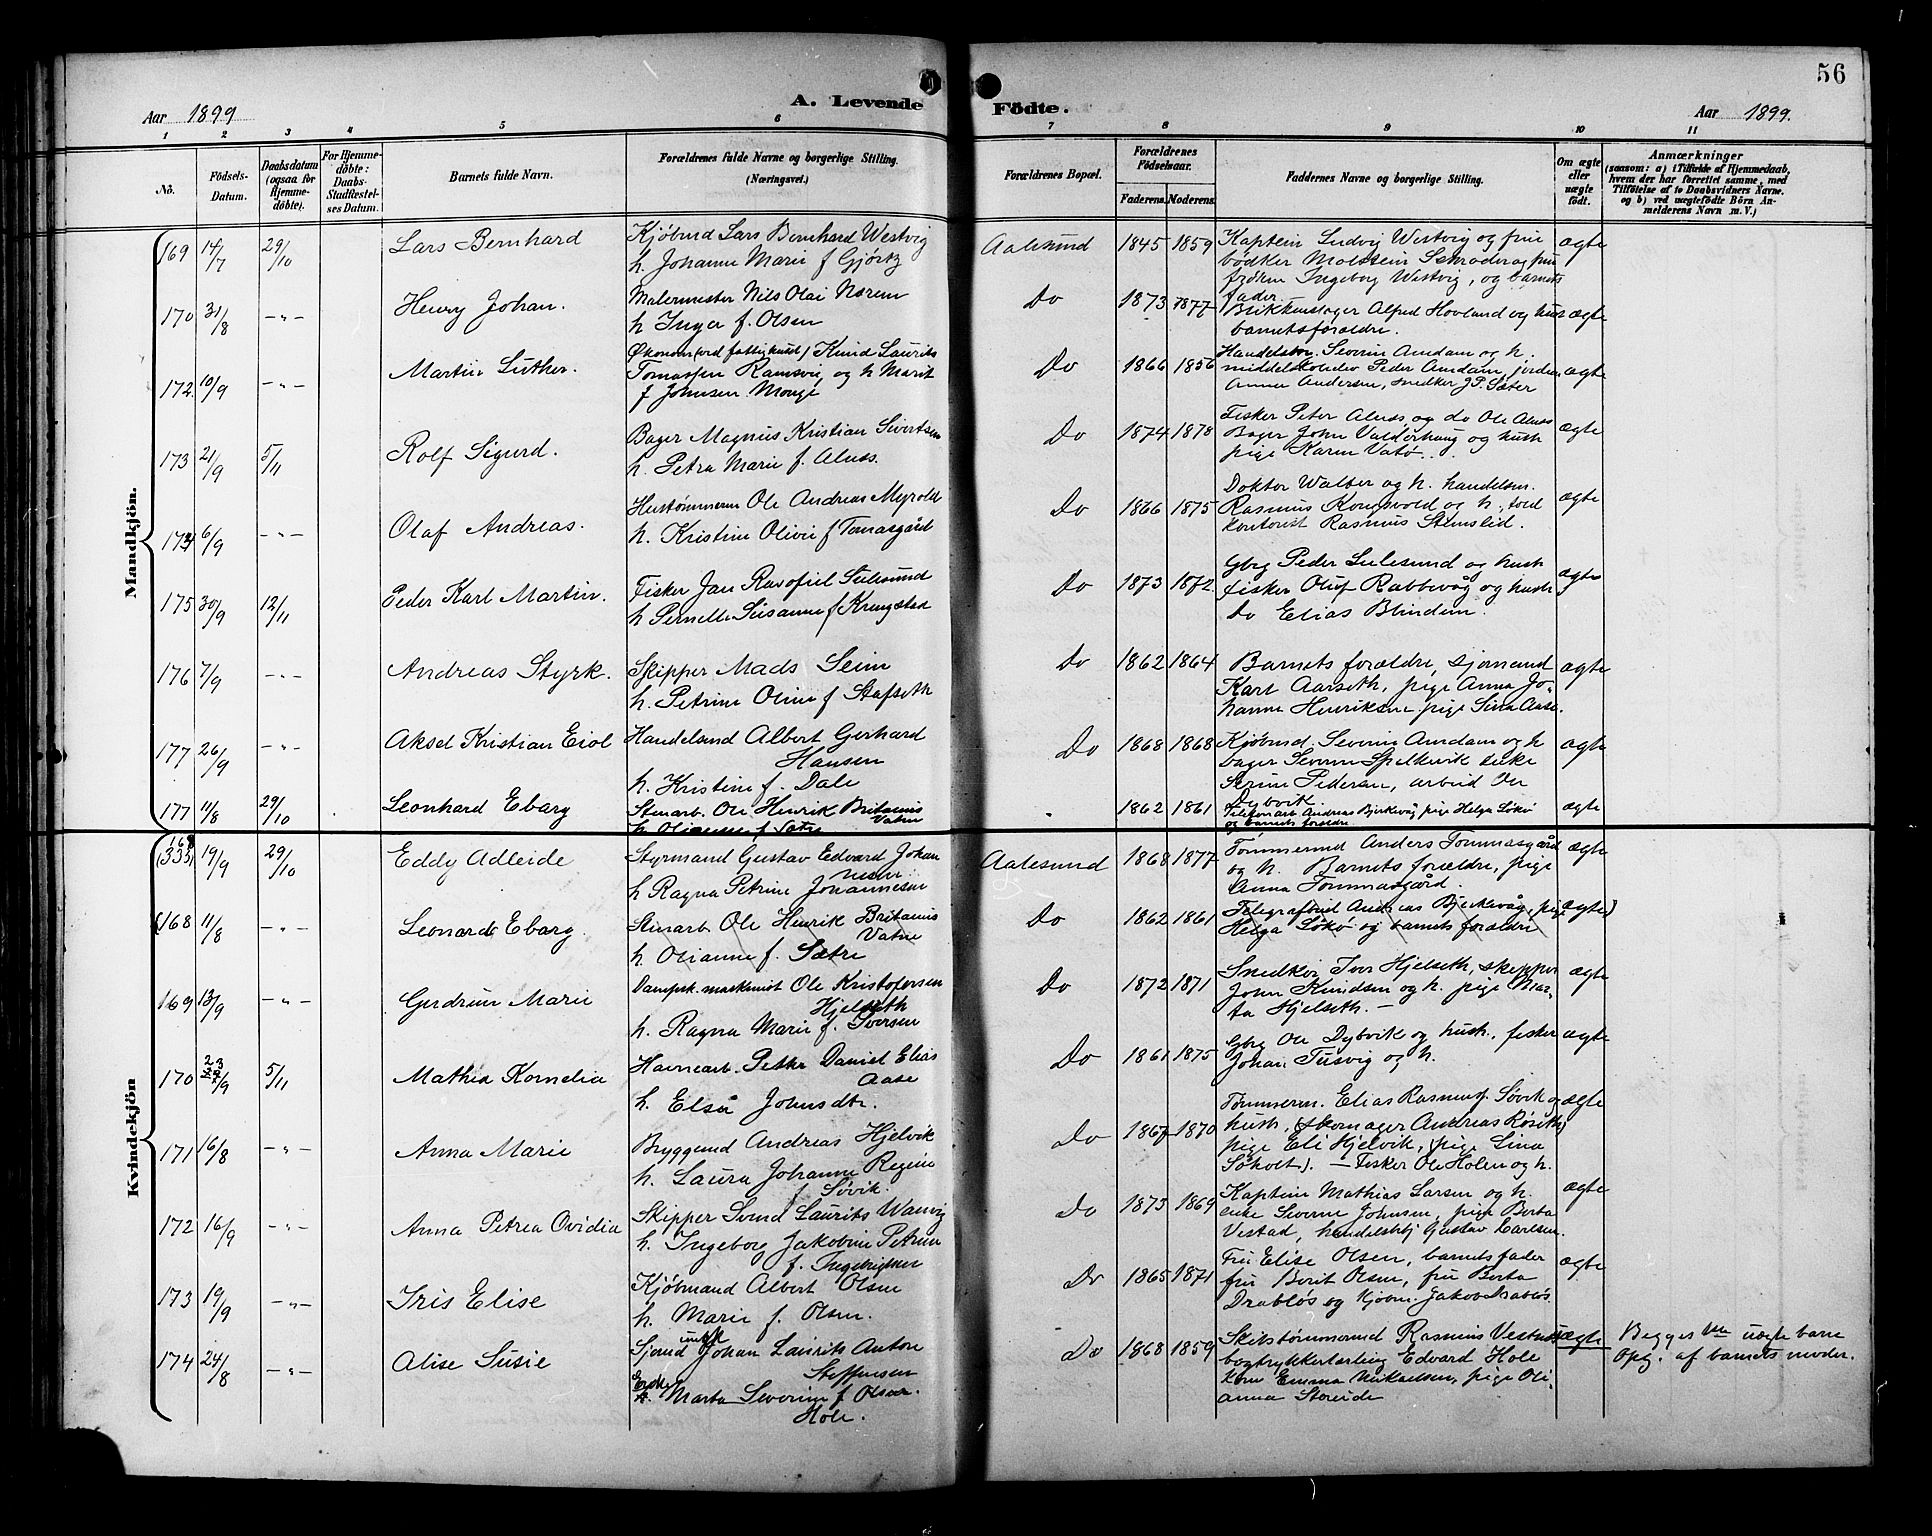 56
A. Levende Födte.
Aar 1899 Aar 1899.
1 2 3 4 5 6 7 8 9 10 11
No. Födsels-Datum. Daabsdatum (ogsaa for Hjemmedöbte). For Hjemmedöbte: Daabs-Stadfæstelses Datum. Barnets fulde Navn. Forældrenes fulde Navne og borgerlige Stilling. (Næringsvei.) Forældrenes Bopæl. Forældrenes Födselsaar. Faderens. Moderens. Faddernes Navne og borgerlige Stilling. Om ægte eller uægte födt. Anmærkninger (saasom: a) i Tilfælde af Hjemmedaab, hvem der har forrettet samme, med Tilföielse af to Daabsvidners Navne, og b) ved uægtefödte Börn Anmelderens Navn m. V.)
Mandkjön.
169 14/7 29/10 Lars Bernhard Kjøbmd Lars Bernhard Westvig Aalesund 1845 1859 Kaptein Ludvig Westvig og frue ægte
h. Johanne Marie f Gjørtz bødker Molstein Schrøder og frue
frøken Ingeborg Westvig, og barnets
fader.
170 31/8 -"- Henry Johan. Malermester Nils Olai Norem Do 1873 1877 Blikkenslager Alfred Hovland og hust ægte
h Inga f. Olsen barnets forældre.
172 10/9 -"- Martin Luther. Økonom (ved fattighuset) Knud Laurits Do 1866 1856 Handelsbor. Severin Amdam og h. ægte
Tomassen Ramsvig, og h Marit middelskoleelev Peder Amdam, jordm.
f Johnsen Monge Anna Andersen, snedker J.P. Sæter
173 21/9 5/11 Rolf Sigurd. Bager Magnus Kristian Sivertsen Do 1874 1878 Fisker Peter Alnæs og do Ole Alnæs ægte
h. Petra Marie f. Alnæs. Bager John Valderhaug og hust
pige Karen Vatø...
174 6/9 -"- Olaf Andreas. Hustømmerm Ole Andreas Myrold Do 1866 1875 Doktor Walber og h. handelsm. ægte
h. Kristine Olivie f Tomasgård Rasmus Kongsvold og h, told
kontorist Rasmus Stenslid.
175 30/9 12/11 Peder Karl Martin. Fisker Jan Ravofiel Sulesund Do 1873 1872 Gbrg Peder Sulesund og hust ægte
h Pernelle Susanne f Krungstad fisker Oluf Rabbevåg og hust
Do Elias Blindem.
176 7/9 -"- Andreas Styrk. Skipper Mads Seim Do 1862 1864 Barnets forældre, sjømand ægte
h. Petrine Oline f Stafseth Karl Aarseth, pige Anna Jo-
hanne Henriksen pige Sina Aase.
177 26/9 -"- Aksel Kristian Eiol Handelsmd Albert Gerhard Do 1868 1868 Kjøbmd. Severin Amdam og h ægte
Hansen bager Severin Spelkevik enke
h. Kristine f. Dale Serine Pedersen, arbeid Ole
Dybvik
177 11/8 29/10 Leonhard Ebarg Stenarb. Ole Henrik Britanius . 1862 1861 Telefonarb Andreas Bjerkevåg, pige Helga Søkø ægte
Vatne
h. Olianne f Sætre og barnets forældre
Kvindekjön
168
(333) 19/9 29/10 Eddy Adleide Styrmand Gustav Edvard Johan Aalesund 1868 1877 Tømmermd Anders Tommasgård ægte
nesen og h. Barnets forældre, pige
h Ragna Petrine Johannesen Anna Tommasgård.
(168 11/8 -"- Leonard Ebarg. Stenarb Ole Henrik Britanius Do 1862 1861 Telegrafbud Andreas Bjerkevåg, pige ægte)
Vatne Helga Søkø og barnets forældre
h. Olianne f. Sætre
169 13/9 -"- Gudrun Marie Dampsk. maskinist Ole Kristofersen Do 1872 1871 Snedker Iver Hjelseth, skipper ægte
Hjelseth John Knudsen og h. pige Mar-
h. Ragna Marie f. Iversen ta Hjelseth. —
170 23/9 5/11 Mathea Kornelia Havnearb. Petter Daniel Elias Do 1861 1875 Gbrg Ole Dybvik og hust., fisker ægte
Aase Johan Tusvig og h.
h. Elså Johnsdtr.
171 16/8 -"- Anna Marie Bryggemd Andreas Hjelvik Do 1867 1870 Tømmerm. Elias Rasmus Søvik og ægte
h. Laura Johanne Regine hust, (skomager Andreas Røseth)
f Søvik. pige Eli Hjelvik, (pige Lina
Søholt). — Fisker Ole Holen og h.
172 16/9 -"- Anna Petrea Ovidia Skipper Svend Laurits Wanvig Do 1873 1869 Kaptein Mathias Larsen og h. ægte
h. Ingeborg Jakobine Petrine enke Severine Johnsen, pige Berta
f. Ingebrigtsen Vestad, handelsbtj Gustav Carlsen.
173 19/9 -"- Iris Elise Kjøbmand Albert Olsen Do 1865 1871 Fru Elise Olsen, barnets fader ægte
h. Marie f. Olsen. fru Berit Olsen, fru Berta
Drabløs og Kjøbm. Jakob Drabløs.
174 24/8 -"- Alise Susie Sjømd ungk Johan Laurits Anton Do 1868 1859 Skibstømmermd Rasmus Vestnes uægte Begges uægte barn
Steffensen bogtrykkerlærling Edvard Hole Opg. af barnets moder.
Enke Marta Severine f Olsen kone Emma Mikaelsen, pige Oli-
Hole. anna Storeide